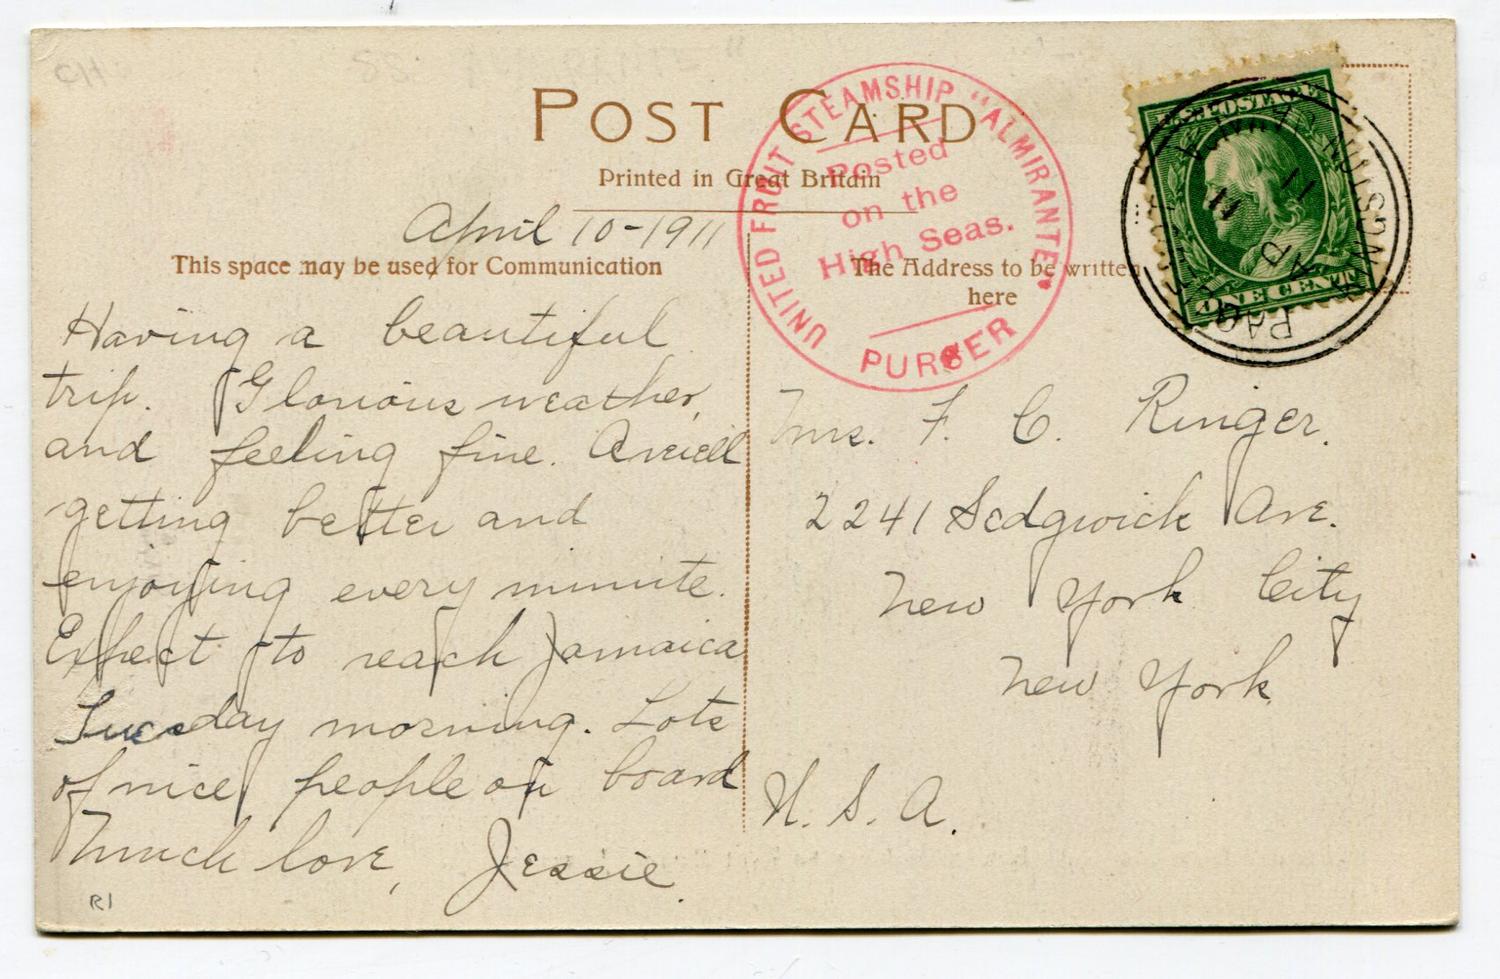 POST CARD
Printed in Great Britain
UNITED FRUIT STEAMSHIP "ALMIRANTE"
Posted
on the
High Seas.
PURSER
U.S. POSTAGE
ONE CENT
KINGSTON JAMAICA
AP 11
11
April 10-1911
This space may be used for Communication
The Address to be written
here
Having a beautiful
trip. Glorious weather,
and feeling fine.
getting better and
enjoying every minute.
Expect to reach Jamaica
Tuesday morning. Lots
of nice people on board
Much love, Jessie.
Mrs. F. C. Ringer.
2241 Sedgwick Ave.
New York City
New York
U. S. A.
R1